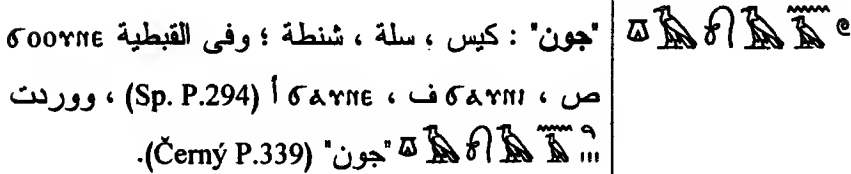 "جون" : كيس ، سلة ، شنطة ؛ وفى القبطية ϭⲟⲟⲩⲛⲉ
ص ، ϭⲁⲩⲛⲓ ف ، ϭⲁⲩⲛⲉ أ (Sp. P.294) ، ووردت
"جون" (Černý P.339).